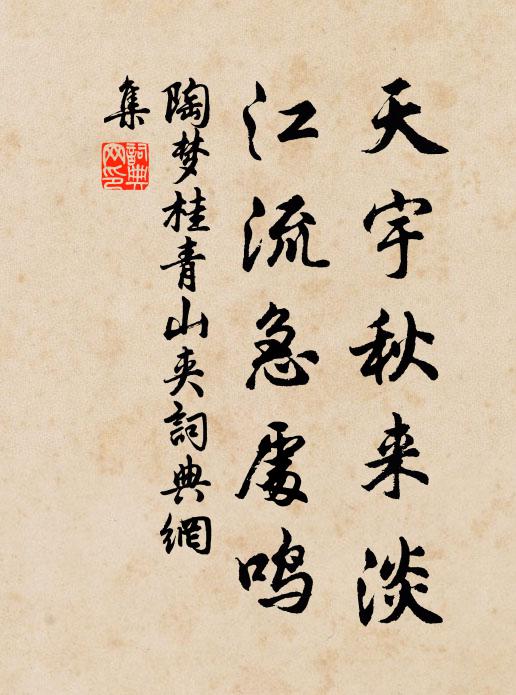 天宇秋来淡
江流急處鳴
陶梦桂青山夹詞典網
集
詞典
网印